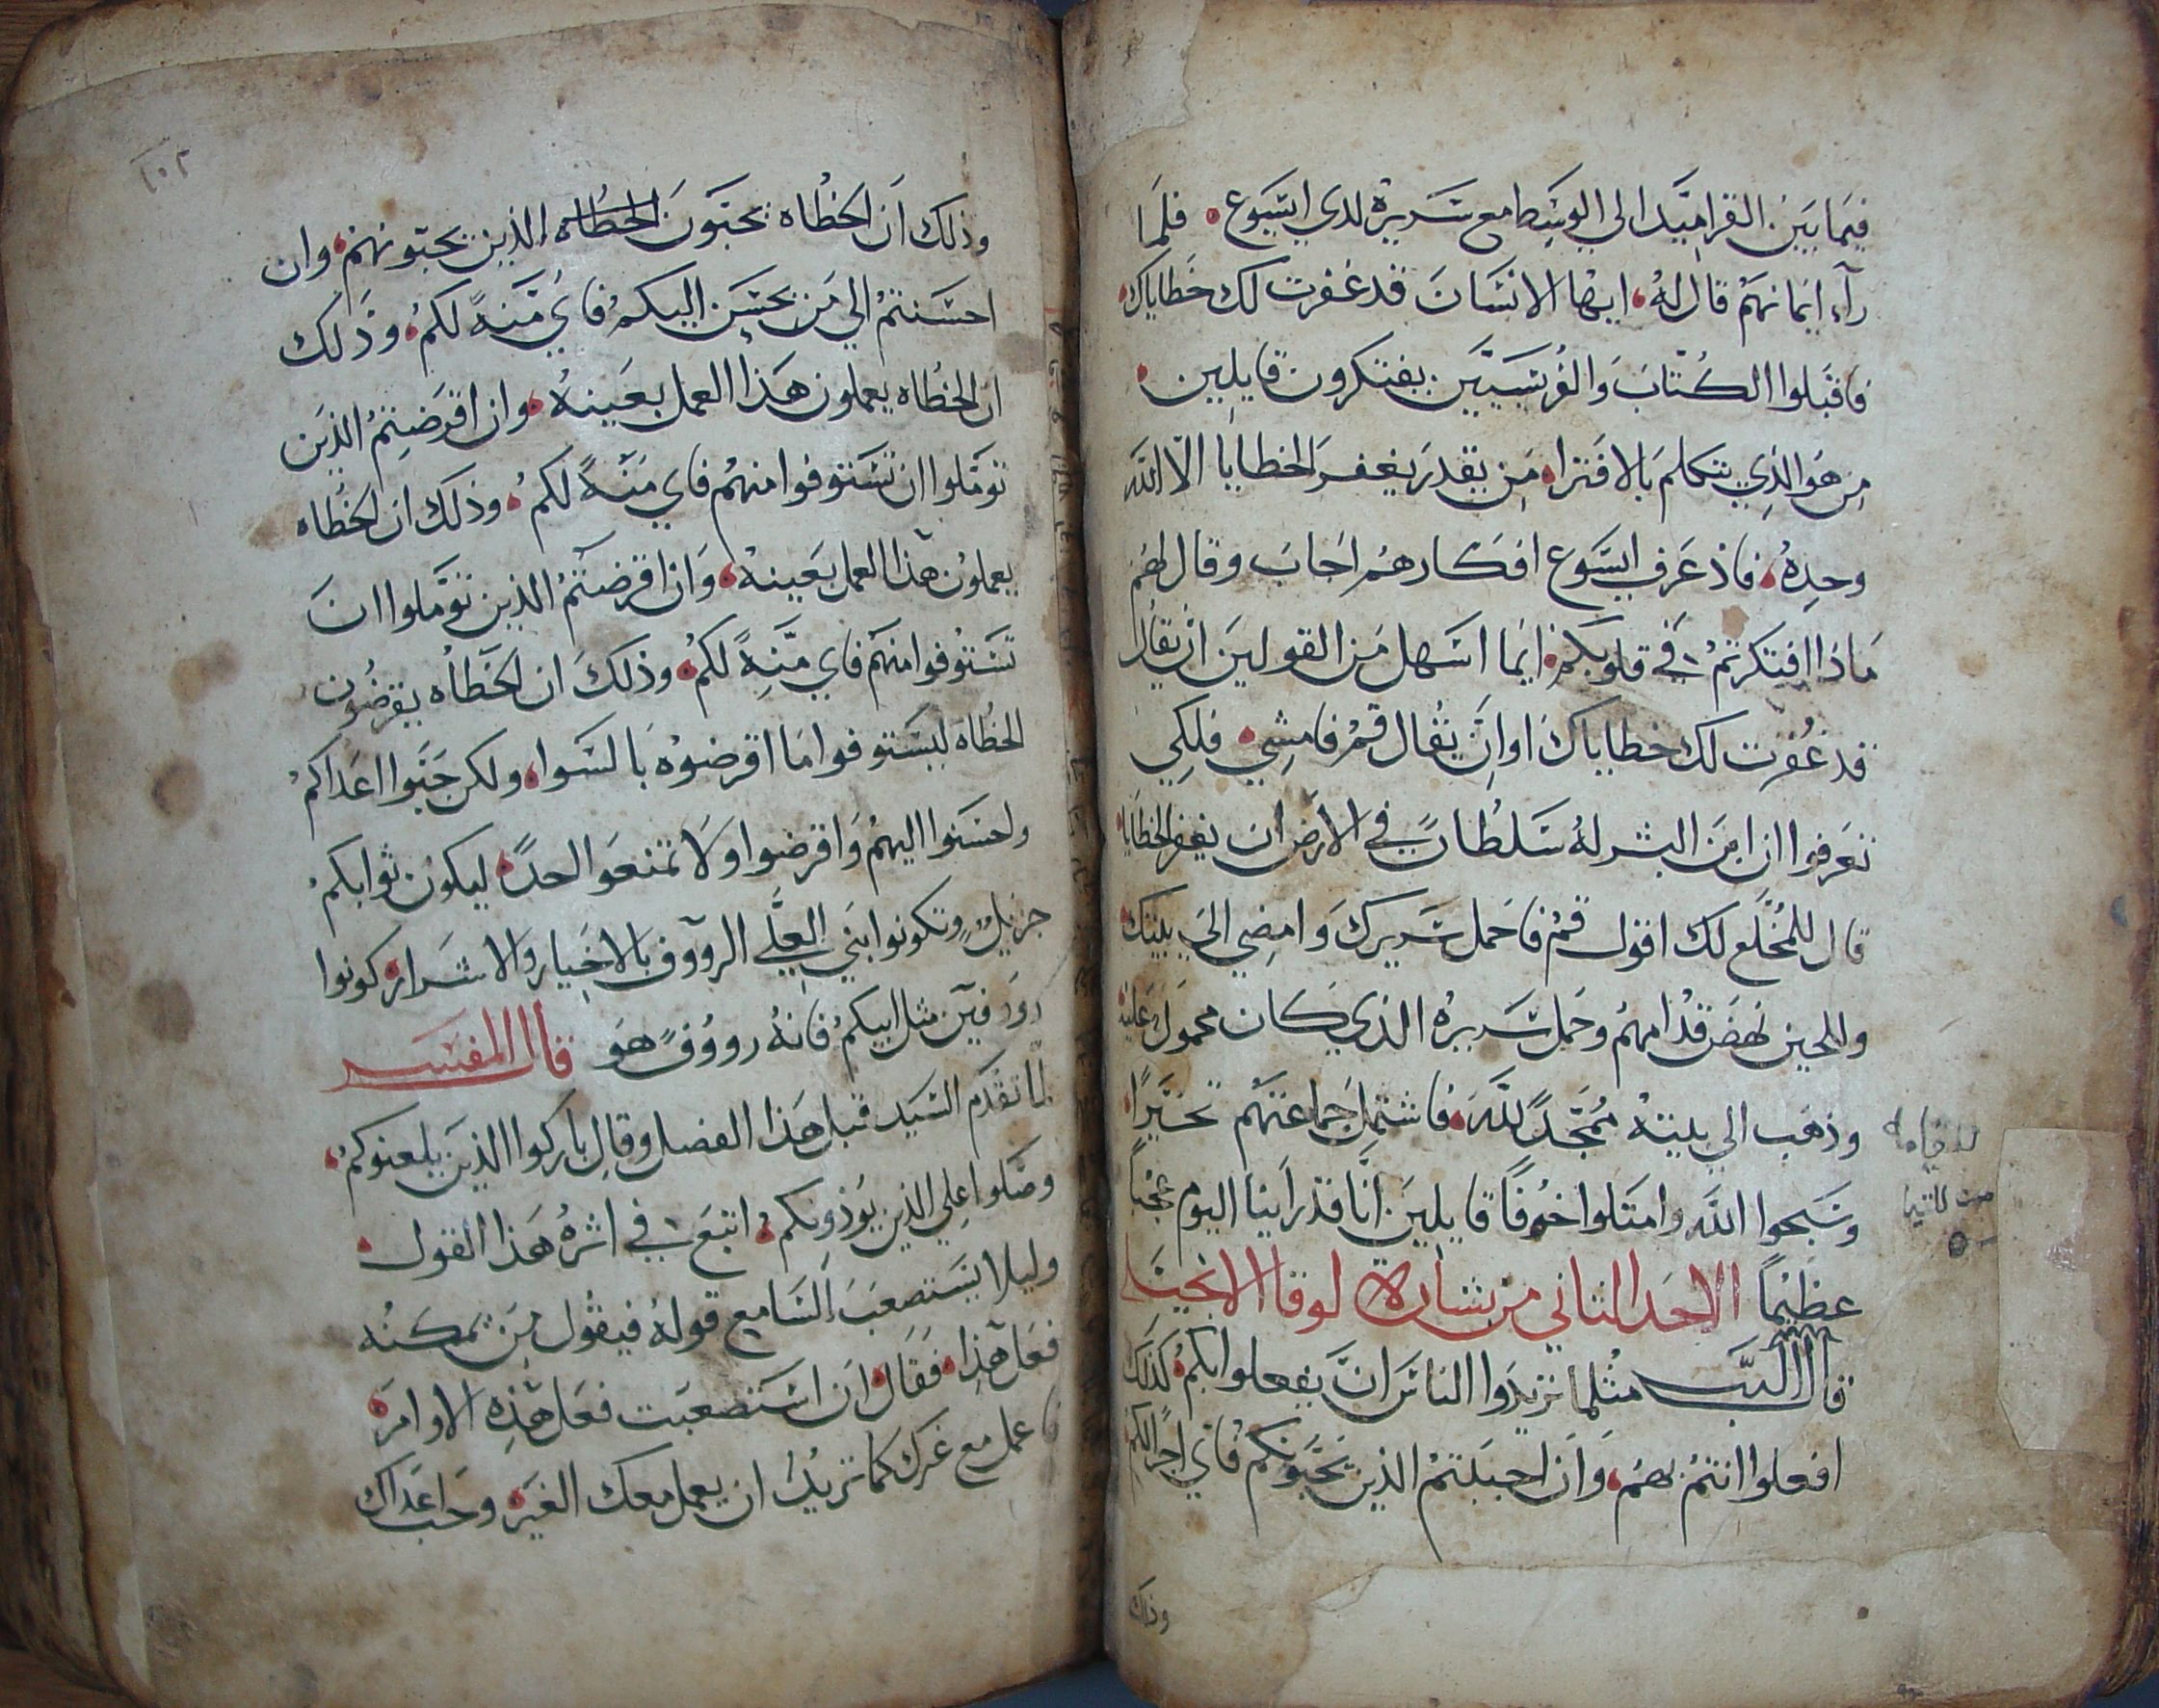 فيما بين القراميد الي الوسط مع سريره لدي ايسوع فلما
رآء ايمانهم قال له ايها الانسان قد غفرت لك خطاياك
فاقبلوا الكتاب والفريسيين يفتكرون قايلين
من هو الذي يتكلم بالافتراء من يقدر يغفر الخطايا الا الله
وحده فاذ عرف ايسوع افكارهم اجاب وقال لهم
ماذا افتكرتم في قلوبكم ايما اسهل من القولين ان يقال
قد غفرت لك خطاياك او ان يقال قم فامشي فلكي
تعرفوا ان ابن البشر له سلطان في الارض ان يغفر الخطايا
قال للمخلع لك اقول قم فاحمل سريرك وامضي الي بيتك
وللحين نهض قدامهم وحمل سريره الذي كان محمول عليه
وذهب الي بيته ممجدا لله فاشتمل جماعتهم تحيرا
وسبحوا الله وامتلوا خوفا قايلين انا قد راينا اليوم عجبا
عظيما الاحد الثاني من بشارة لوقا الانجيلي
قال الرب مثلما تريدوا الناس ان يفعلوا بكم كذلك
افعلوا انتم بهم وان احببتم الذين يحبونكم فاي اجرا لكم
وذلك
١٠٢
وذلك ان الخطاه يحبون الخطاه الذين يحبونهم وان
احسنتم الي من يحسن اليكم فاي منه لكم وذلك
ان الخطاه يعملون هذا العمل بعينه وان اقرضتم الذين
توملوا ان تستوفوا منهم فاي منة لكم وذلك ان الخطاه
يعملون هذا العمل بعينه وان اقرضتم الذين توملوا ان
تستوفوا منهم فاي منة لكم وذلك ان الخطاه يقرضون
الخطاه ليستوفوا ما اقرضوه بالسوا ولكن حبوا اعداكم
واحسنوا اليهم واقرضوا ولا تمنعوا احدا ليكون ثوابكم
جزيل وتكونوا بني العلي الرووف بالاخيار والاشرار كونوا
روفين مثل ابيكم فانه رووف هو قال المفسر
لما تقدم السيد قبل هذا الفصل وقال باركوا الذين يلعنوكم
وصلوا علي الذين يوذونكم اتبع في اثره هذا القول
وليلا يستصعب السامع قوله فيقول من يمكنه
فعل هذا فقال ان استصعبت فعل هذه الاوامر
فاعمل مع غيرك كما تريد ان يعمل معك الغير وحب اعداك